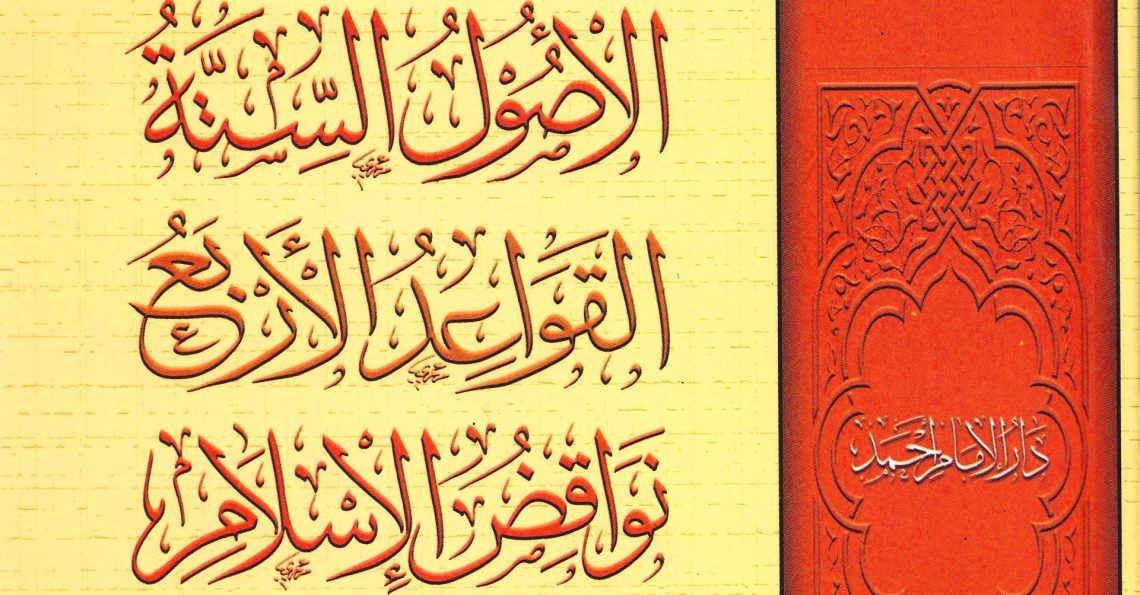 الأُصُوْلُ السِّتَّةُ
القَوَاعِدُ الأَرْبَعُ
نَوَاقِضُ الإِسْلَامِ
دَارُ الإِمَامِ أَحْمَد